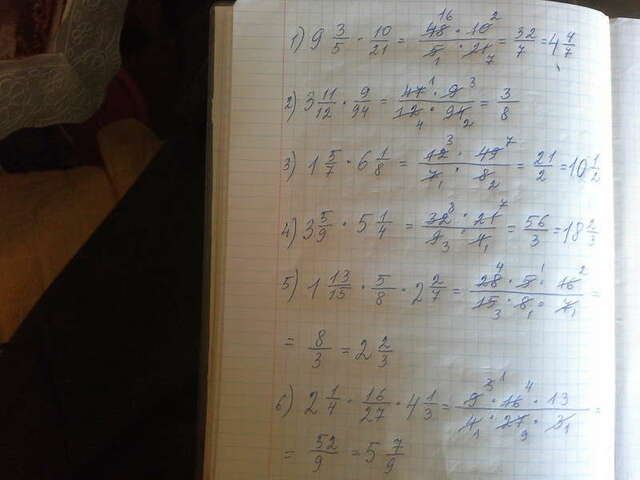 1) 9 3/5 · 10/21 = (48 · 10)/(5 · 21) = 32/7 = 4 4/7
2) 3 11/12 · 9/94 = (47 · 9)/(12 · 94) = 3/8
3) 1 5/7 · 6 1/8 = (12 · 49)/(7 · 8) = 21/2 = 10 1/2
4) 3 5/9 · 5 1/4 = (32 · 21)/(9 · 4) = 56/3 = 18 2/3
5) 1 13/15 · 5/8 · 2 2/7 = (28 · 5 · 16)/(15 · 8 · 7) =
= 8/3 = 2 2/3
6) 2 1/4 · 16/27 · 4 1/3 = (9 · 16 · 13)/(4 · 27 · 3) =
= 52/9 = 5 7/9